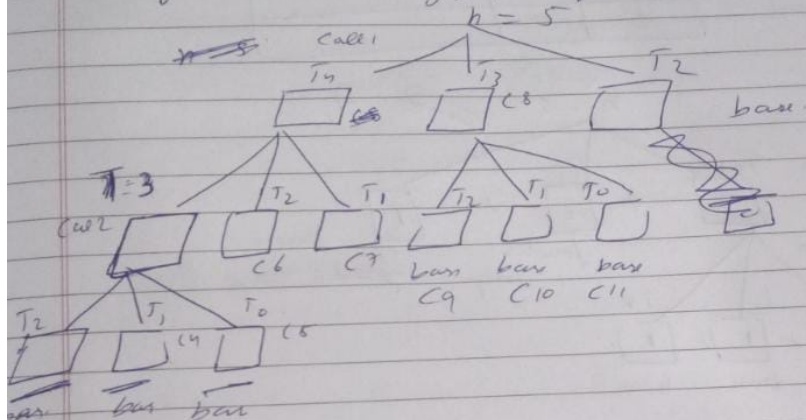 n = 5
Call 1
T4 T3 T2
C8
base
T=3
T2 T1 T2 T1 T0
Call 2
C6 C7 base base base
C9 C10 C11
T2 T1 T0
C4 C5
base bas base